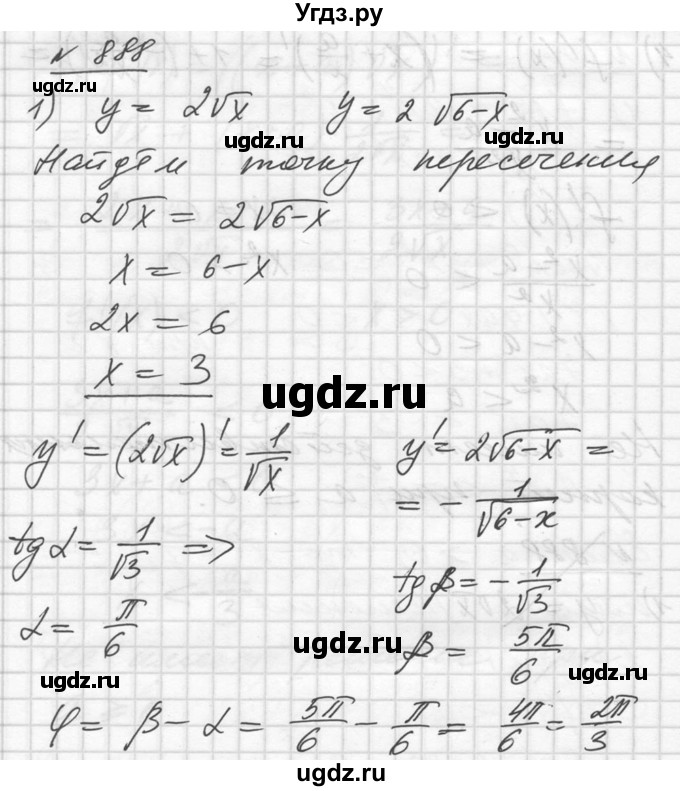 Угдз.ру
№ 888
1) y = 2√x    y = 2 √6-x
ugdz.ru ugdz.ru
Найдём точку пересечения
2√x = 2√6-x
x = 6-x
2x = 6
x = 3
ugdz.ru
y' = (2√x)' = 1/√x    y' = 2√6-x =
= - 1/√6-x
ugdz.ru
tg α = 1/√3 =>    tg β = - 1/√3
α = π/6    β = 5π/6
ugdz.ru
ugdz.ru ugdz.ru
φ = β - α = 5π/6 - π/6 = 4π/6 = 2π/3
ugdz.ru
ugdz.ru